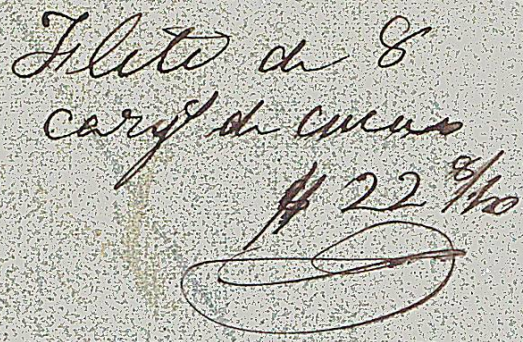 Flete de 8
cargs de cueros
$ 22 8/10